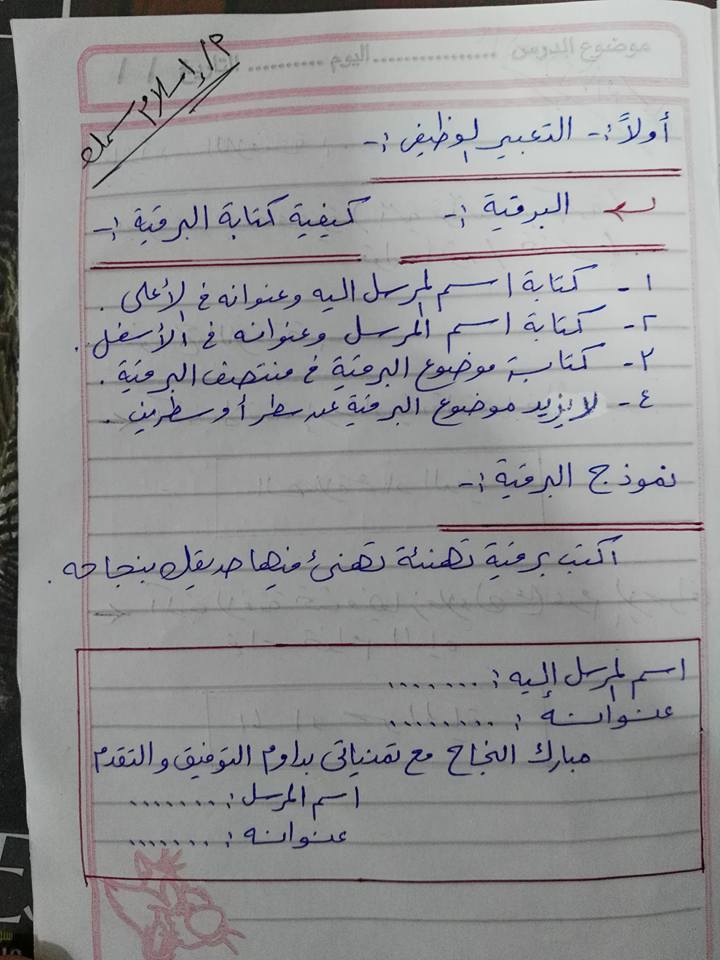 موضوع الدرس ................ اليوم .......... التاريخ / /
م/ إسلام سمك
أولاً :- التعبير الوظيفى :-
البرقية :- كيفية كتابة البرقية :-
١- كتابة اسم المرسل اليه وعنوانه فى الأعلى .
٢- كتابة اسم المرسل وعنوانه فى الأسفل .
٣- كتابة موضوع البرقية فى منتصف البرقية .
٤- لا يزيد موضوع البرقية عن سطر أو سطرين .
نموذج البرقية :-
اكتب برقية تهنئة تهنئ فيها صديقك بنجاحه .
اسم المرسل إليه : .......
عنوانه : .........
مبارك النجاح مع تمنياتى بداوم التوفيق والتقدم
اسم المرسل : ........
عنوانه : .......